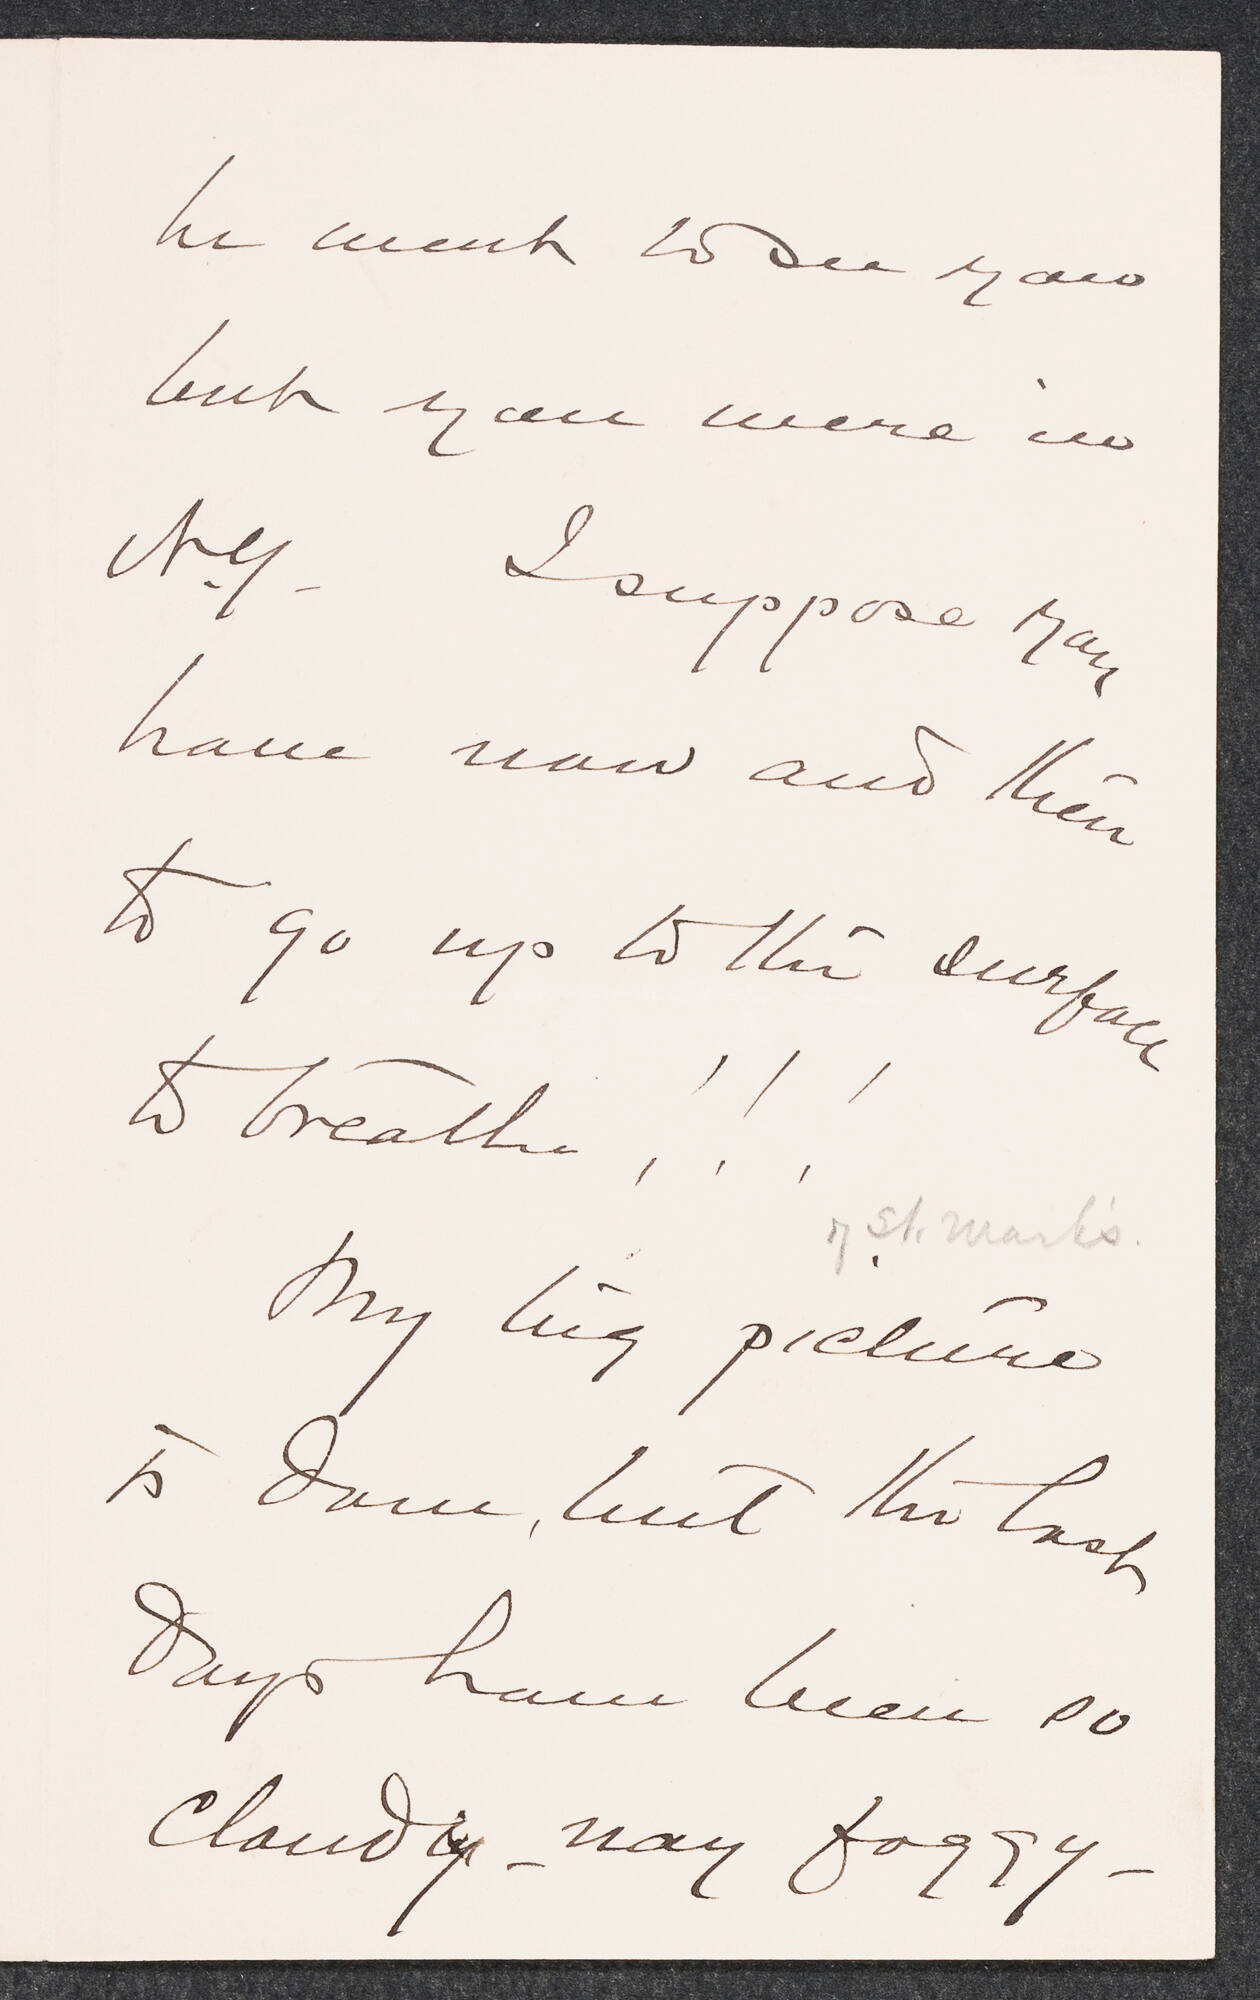 he went to see you
but you were in
N.Y. - I suppose you
have now and then
to go up to the surface
to breathe!!!
of St. Mark's.
My big picture
is done, but the last
days have been so
cloudy - nay foggy -